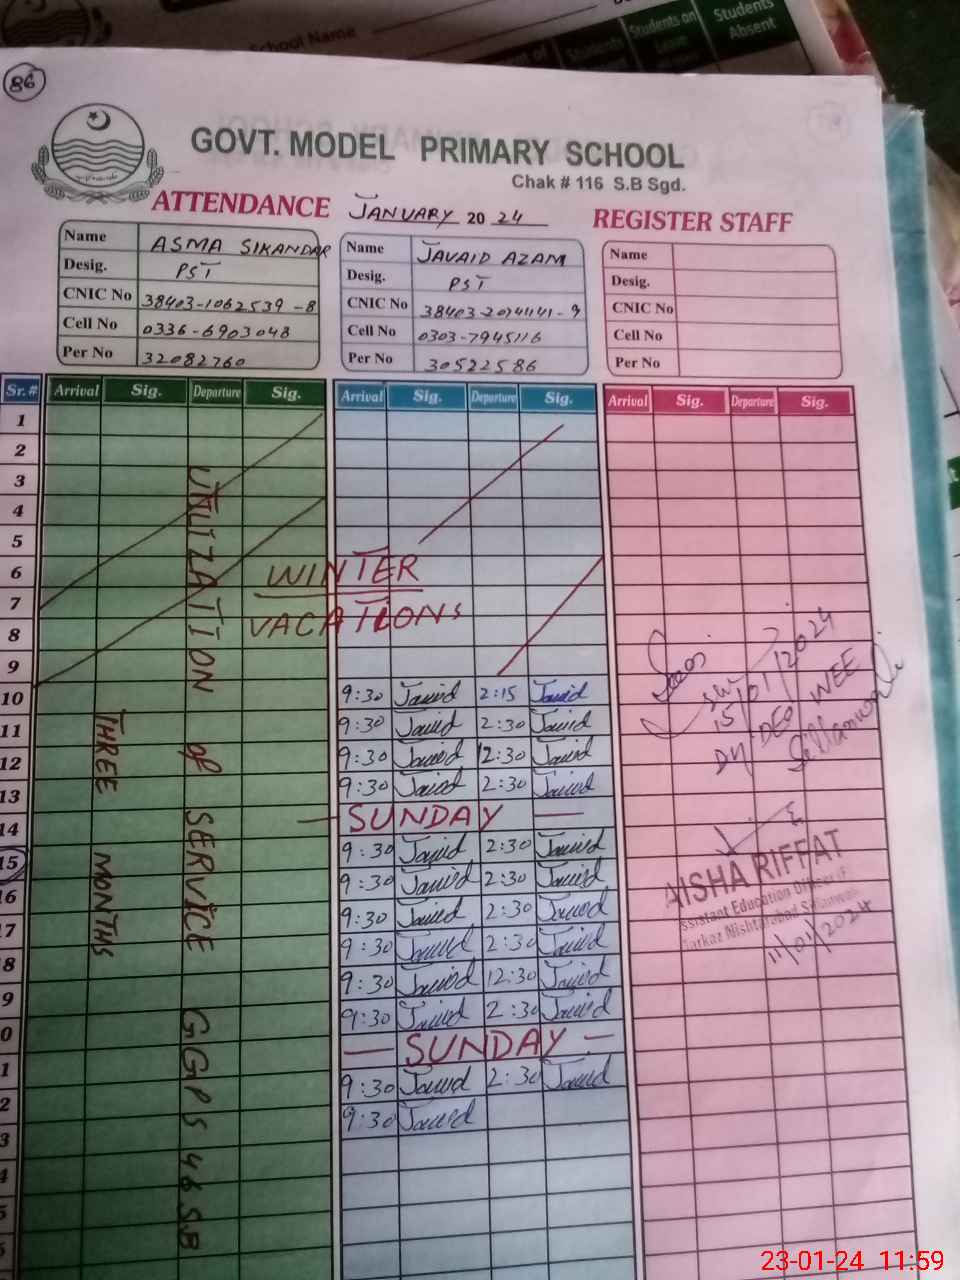 School Name
Students on
Leave
Students
Absent
86
GOVT. MODEL PRIMARY SCHOOL
Chak # 116 S.B Sgd.
ATTENDANCE JANUARY 2024 REGISTER STAFF
Name ASMA SIKANDAR
Desig. PST
CNIC No 38403-1062539-8
Cell No 0336-6903048
Per No 32082760
Name JAVAID AZAM
Desig. PST
CNIC No 38403-2074141-9
Cell No 0303-7945116
Per No 30522586
Name
Desig.
CNIC No
Cell No
Per No
Sr.# Arrival Sig. Departure Sig. Arrival Sig. Departure Sig. Arrival Sig. Departure Sig.
1
2
3
4
5
6
7
8
9
10 9:30 Javid 2:15 Javid
11 9:30 Javid 2:30 Javid
12 9:30 Javid 12:30 Javid
13 9:30 Javid 2:30 Javid
14 SUNDAY
15 9:30 Javid 2:30 Javid
16 9:30 Javid 2:30 Javid
17 9:30 Javid 2:30 Javid
8 9:30 Javid 2:30 Javid
9 9:30 Javid 12:30 Javid
0 9:30 Javid 2:30 Javid
1 SUNDAY
2 9:30 Javid 2:30 Javid
3 9:30 Javid
4
5
6
WINTER
VACATIONS
UTILIZATION of SERVICE GGPS 46 S.B
THREE MONTHS
15/01/2024
Dy DEO WEE
Sillanwali
AISHA RIFFAT
Assistant Education Officer (F)
Markaz Nishtarabad Sillanwali
11/01/2024
23-01-24 11:59